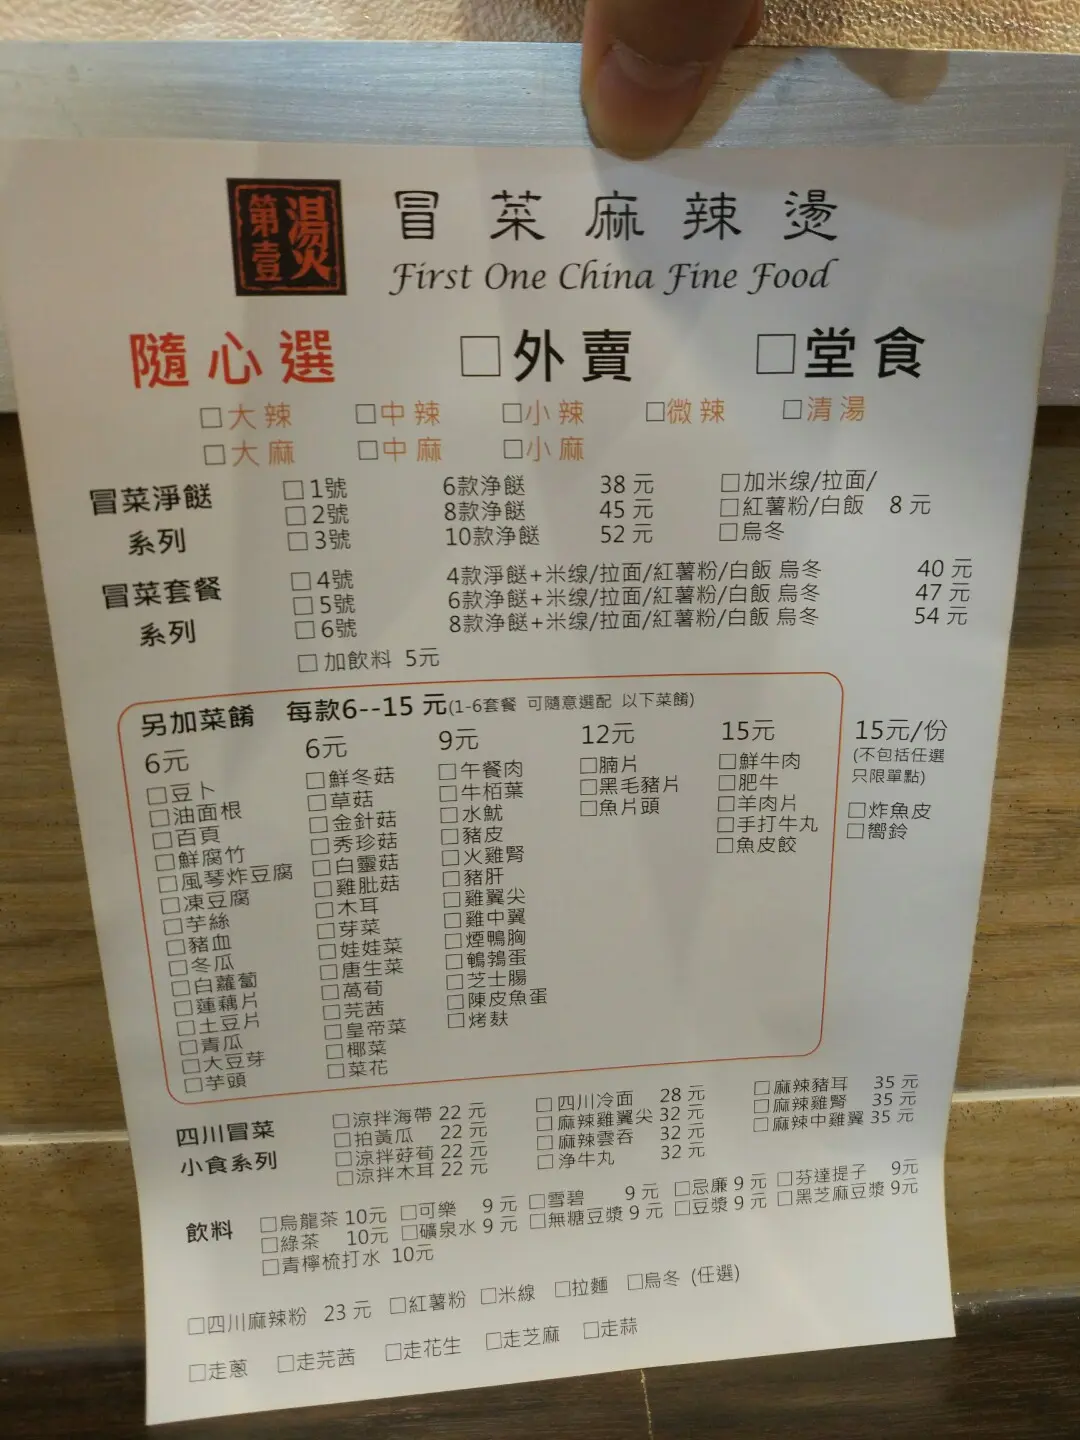 第壹 燙
冒菜麻辣燙
First One China Fine Food
隨心選 □外賣 □堂食
□大辣 □中辣 □小辣 □微辣 □清湯
□大麻 □中麻 □小麻
冒菜淨餸
系列
□1號 6款淨餸 38 元
□2號 8款淨餸 45 元
□3號 10款淨餸 52 元
□加米线/拉面/
□紅薯粉/白飯 8 元
□烏冬
冒菜套餐
系列
□4號 4款淨餸+米线/拉面/紅薯粉/白飯 烏冬 40 元
□5號 6款淨餸+米线/拉面/紅薯粉/白飯 烏冬 47 元
□6號 8款淨餸+米线/拉面/紅薯粉/白飯 烏冬 54 元
□加飲料 5元
另加菜餚 每款6--15 元(1-6套餐 可隨意選配 以下菜餚)
6元
□豆卜
□油面根
□百頁
□鮮腐竹
□風琴炸豆腐
□凍豆腐
□芋絲
□豬血
□冬瓜
□白蘿蔔
□蓮藕片
□土豆片
□青瓜
□大豆芽
□芋頭
6元
□鮮冬菇
□草菇
□金針菇
□秀珍菇
□白靈菇
□雞肶菇
□木耳
□芽菜
□娃娃菜
□唐生菜
□萵筍
□芫茜
□皇帝菜
□椰菜
□菜花
9元
□午餐肉
□牛栢葉
□水魷
□豬皮
□火雞腎
□豬肝
□雞翼尖
□雞中翼
□煙鴨胸
□鵪鶉蛋
□芝士腸
□陳皮魚蛋
□烤麸
12元
□腩片
□黑毛豬片
□魚片頭
15元
□鮮牛肉
□肥牛
□羊肉片
□手打牛丸
□魚皮餃
15元/份
(不包括任選
只限單點)
□炸魚皮
□嚮鈴
四川冒菜
小食系列
□涼拌海帶 22 元
□拍黃瓜 22 元
□涼拌莩荀 22 元
□涼拌木耳 22 元
□四川冷面 28 元
□麻辣雞翼尖 32 元
□麻辣雲吞 32 元
□净牛丸 32 元
□麻辣豬耳 35 元
□麻辣雞腎 35 元
□麻辣中雞翼 35 元
飲料
□烏龍茶 10元 □可樂 9 元 □雪碧 9 元 □忌廉 9 元 □芬達提子 9元
□綠茶 10元 □礦泉水 9 元 □無糖豆漿 9 元 □豆漿 9 元 □黑芝麻豆漿 9元
□青檸梳打水 10元
□四川麻辣粉 23 元 □紅薯粉 □米線 □拉麵 □烏冬 (任選)
□走蔥 □走芫茜 □走花生 □走芝麻 □走蒜